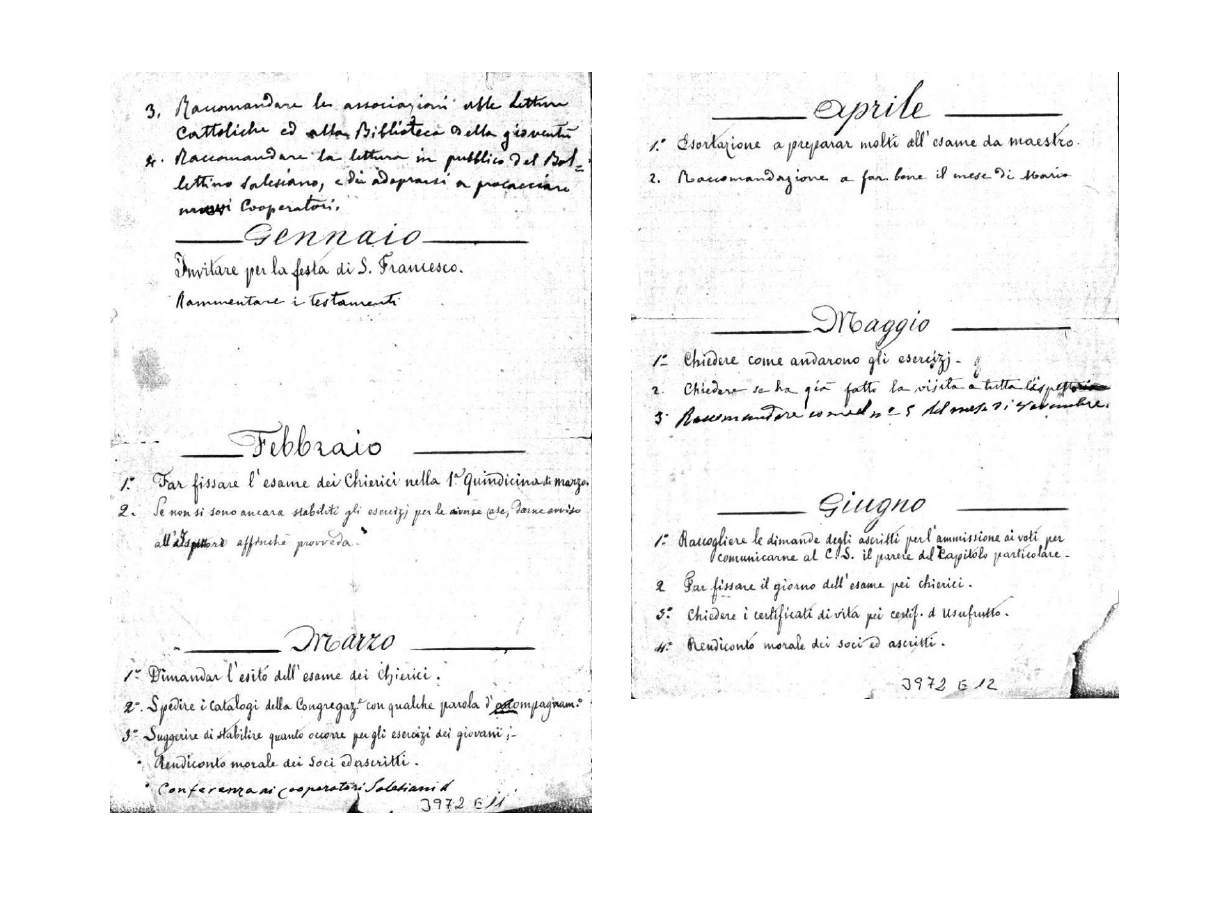 3. Raccomandare le associazioni alle Letture
Cattoliche ed alla Biblioteca della gioventù
4. Raccomandare la lettura in pubblico del Bol=
lettino Salesiano, e di adoprarsi a procacciare
nuovi Cooperatori.
Gennaio
Invitare per la festa di S. Francesco.
Rammentare i testamenti
Febbraio
1.° Far fissare l'esame dei Chierici nella 1ª Quindicina di marzo.
2. Se non si sono ancora stabiliti gli esercizj per le diverse case, darne avviso
all'Ispettore affinchè provveda.
Marzo
1° Dimandar l'esito dell'esame dei Chierici.
2°. Spedire i Catalogi della Congregaz.e con qualche parola d'accompagnam.°
3° Suggerire di stabilire quanto occorre per gli esercizi dei giovani;-
• Rendiconto morale dei Soci ed ascritti.
• Conferenza ai Cooperatori Salesiani
3972 E 11
Aprile
1.° Esortazione a preparar molti all'esame da maestro.
2. Raccomandazione a far bene il mese di Maria
Maggio
1° Chiedere come andarono gli esercizj-
2. Chiedere se ha già fatto la visita a tutta l'ispettoria
3° Raccomandare come al n° 5 del mese di Novembre.
Giugno
1.° Raccogliere le dimande degli ascritti per l'ammissione ai voti per
comunicarne al C.S. il parere del Capitolo particolare-
2 Far fissare il giorno dell'esame pei chierici.
3.° Chiedere i certificati di vita pei certif. d'Usufrutto.
4.° Rendiconto morale dei soci ed ascritti.
3972 E 12